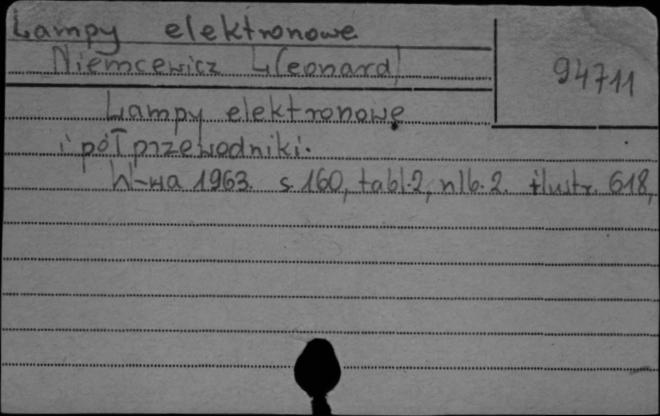 Lampy elektronowe
Niemcewicz L(eonard)
94711
Lampy elektronowe
i półprzewodniki.
W-wa 1963. s 160, tabl. 2, nlb. 2. ilustr. 618,